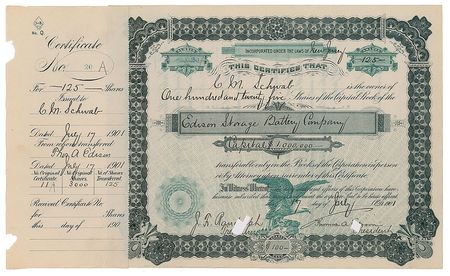 No. Q
Certificate
No. 20 A
For —125— Shares
Issued to
C. M. Schwab
Dated July 17 1901
From whom transferred
Thos. A. Edison
Dated July 17 1901
No. Original Certificate No. Original Shares No. Shares Transferred
11 A 3000 125
Received Certificate No
for Shares
this day of 190
INCORPORATED UNDER THE LAWS OF New Jersey
—125—
THIS CERTIFIES THAT
C. M. Schwab is the owner of
One hundred and twenty five Shares of the Capital Stock of the
Edison Storage Battery Company
Capital $1,000,000
transferable only on the Books of the Corporation in person
or by Attorney upon surrender of this Certificate.
In Witness Whereof
July 1901
J. F. Randolph
Thomas A
President
$100